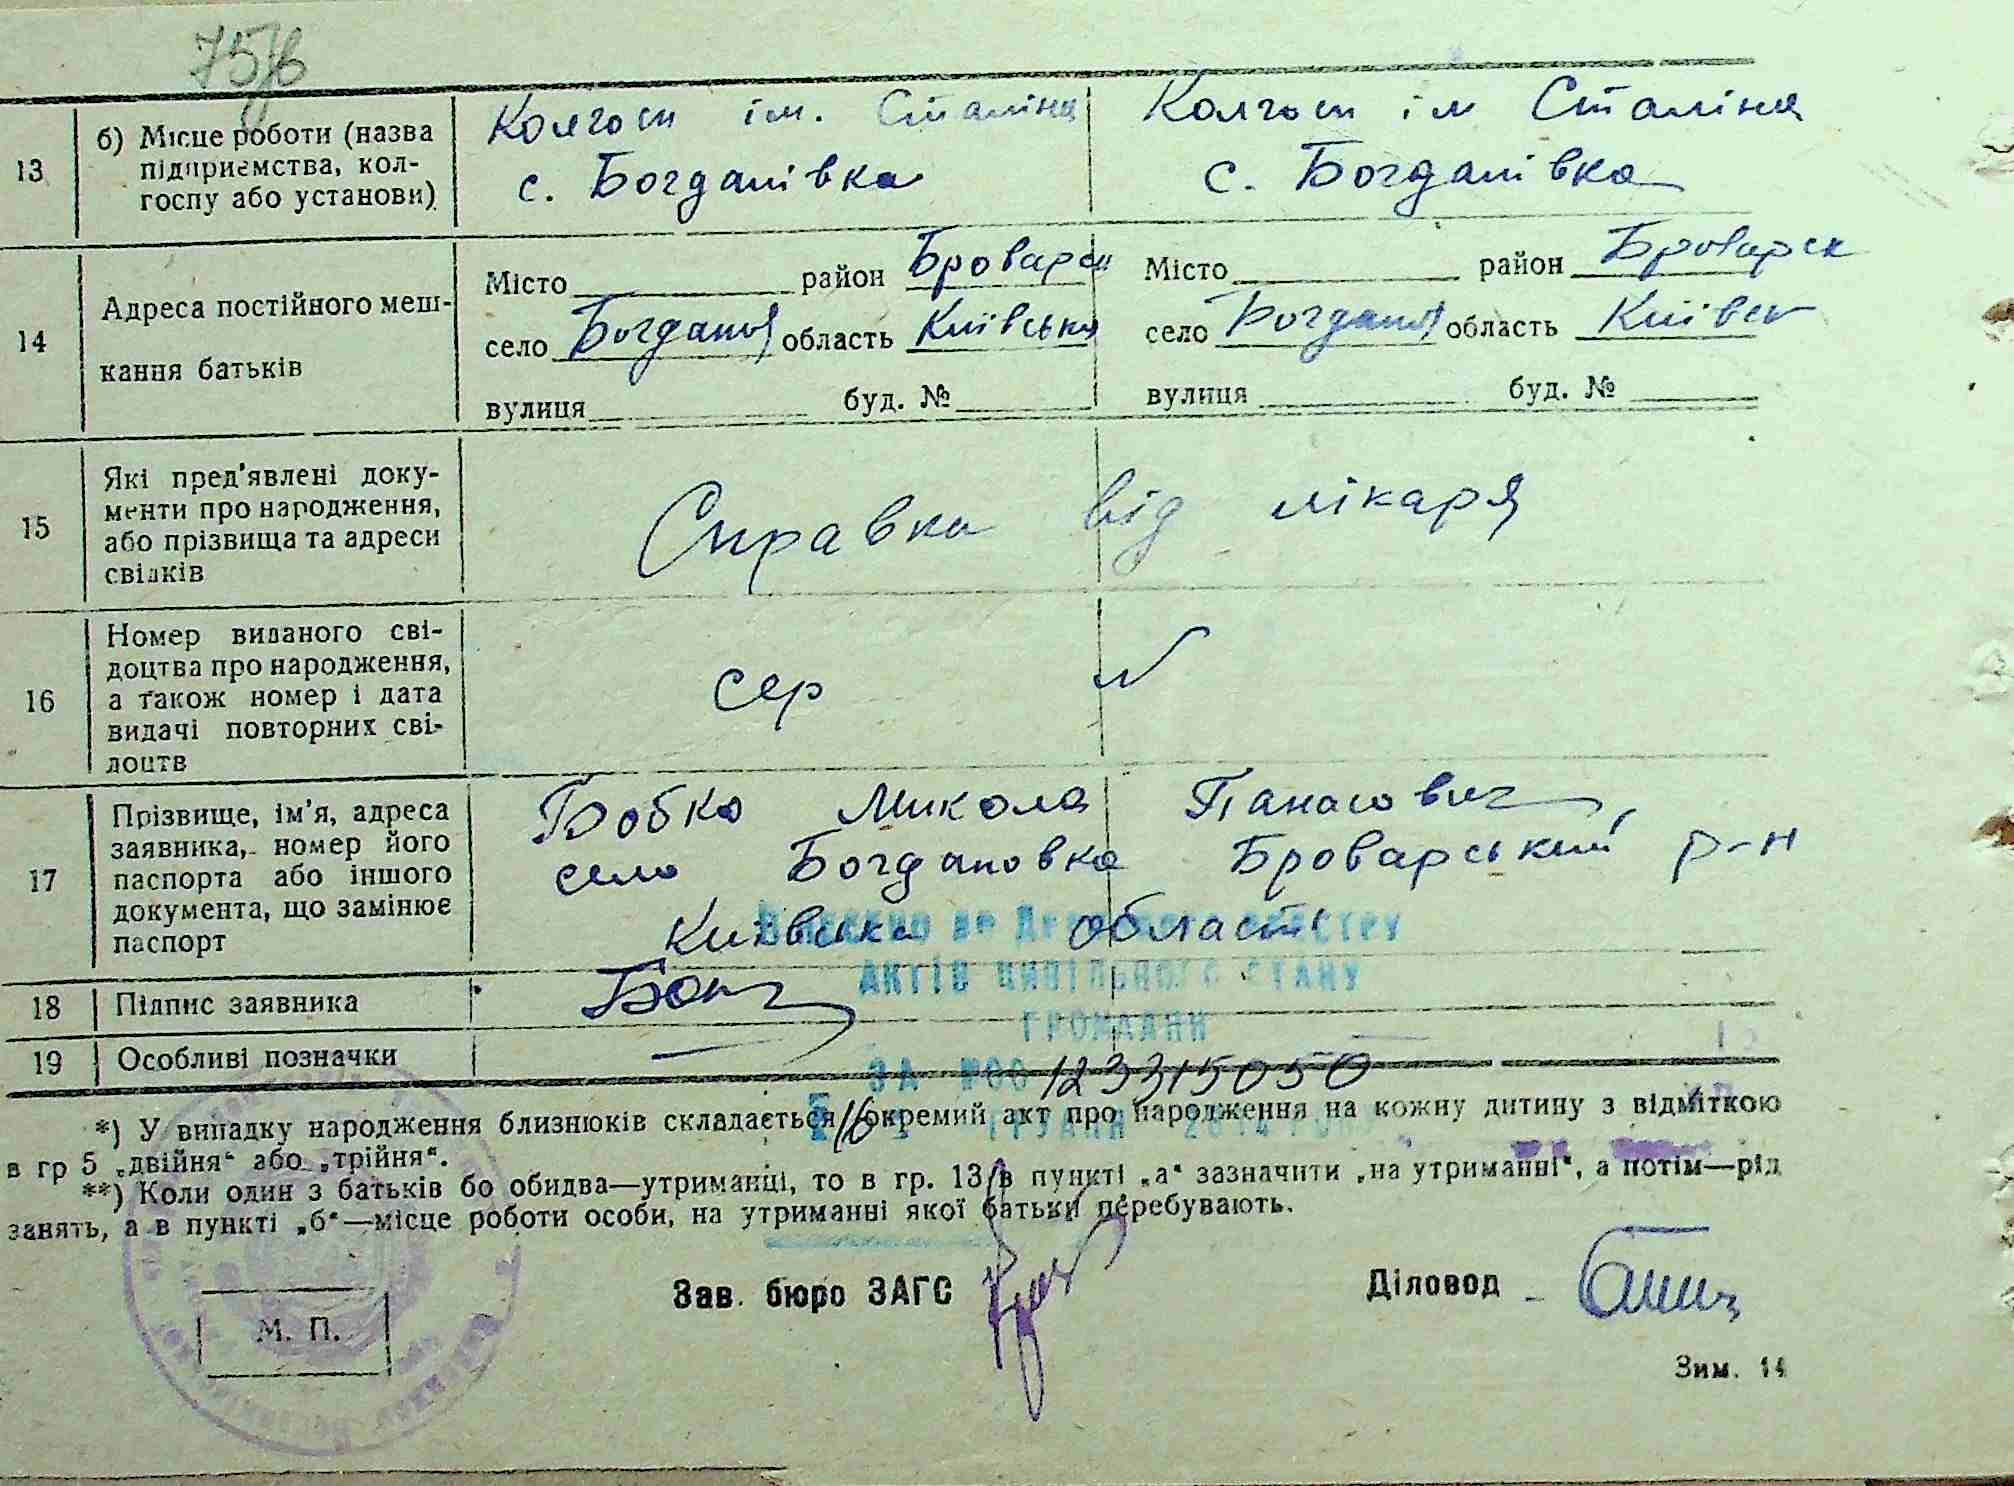 75зв
13
б) Місце роботи (назва
підприємства, кол-
госпу або установи)
Колгосп ім. Сталіна
с. Богданівка
Колгосп ім Сталіна
с. Богданівка
14
Адреса постійного меш-
кання батьків
Місто район Броварськ
село Богданов область Київська
вулиця буд. №
Місто район Броварськ
село Богданов область Київськ
вулиця буд. №
15
Які пред'явлені доку-
менти про народження,
або прізвища та адреси
свідків
Справка від лікаря
16
Номер виданого сві-
доцтва про народження,
а також номер і дата
видачі повторних сві-
доцтв
сер N
17
Прізвище, ім'я, адреса
заявника, номер його
паспорта або іншого
документа, що замінює
паспорт
Бобко Микола Панасович,
село Богдановка Броварський р-н
Київська область
18 Підпис заявника
19 Особливі позначки
до Державного реєстру
актів цивільного стану
громадян
за № 00 123315050
16 грудня 2014 року
*) У випадку народження близнюків складається окремий акт про народження на кожну дитину з відміткою
в гр 5 „двійня“ або „трійня“.
**) Коли один з батьків бо обидва—утриманці, то в гр. 13 в пункті „а“ зазначити „на утриманні“, а потім—рід
занять, а в пункті „б“—місце роботи особи, на утриманні якої батьки перебувають.
М. П.
Зав. бюро ЗАГС
Діловод
Зим. 14